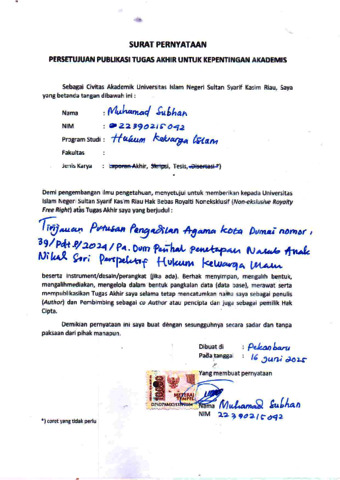 SURAT PERNYATAAN
PERSETUJUAN PUBLIKASI TUGAS AKHIR UNTUK KEPENTINGAN AKADEMIS
Sebagai Civitas Akademik Universitas Islam Negeri Sultan Syarif Kasim Riau, Saya
yang bertanda tangan dibawah ini :
Nama : Muhamad Subhan
NIM : 22390215092
Program Studi : Hukum Keluarga Islam
Fakultas :
Jenis Karya : Laporan Akhir, Skripsi, Tesis, Disertasi *)
Demi pengembangan ilmu pengetahuan, menyetujui untuk memberikan kepada Universitas
Islam Negeri Sultan Syarif Kasim Riau Hak Bebas Royalti Noneksklusif (Non-eksklusive Royalty
Free Right) atas Tugas Akhir saya yang berjudul :
Tinjauan Putusan Pengadilan Agama Kota Dumai nomor,
39/Pdt.P/2024/PA.Dum Perihal penetapan Nasab Anak
Nikah Sari Perspektif Hukum Keluarga Islam
beserta instrument/desain/perangkat (jika ada). Berhak menyimpan, mengalih bentuk,
mengalihmediakan, mengelola dalam bentuk pangkalan data (data base), merawat serta
mempublikasikan Tugas Akhir saya selama tetap mencatumkan nama saya sebagai penulis
(Author) dan Pembimbing sebagai co Author atau pencipta dan juga sebagai pemilik Hak
Cipta.
Demikian pernyataan ini saya buat dengan sesungguhnya secara sadar dan tanpa
paksaan dari pihak manapun.
Dibuat di : Pekanbaru
Pada tanggal : 16 Juni 2025
Yang membuat pernyataan
10000
METERAI
TEMPEL
Nama Muhamad Subhan
NIM 22390215092
*) coret yang tidak perlu